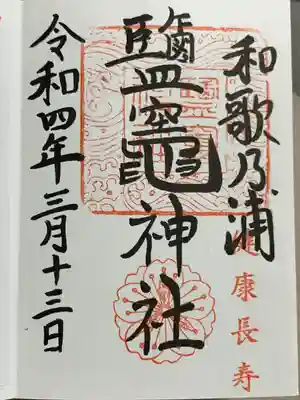 和歌乃浦
鹽竈神社
令和四年三月十三日
健康長寿